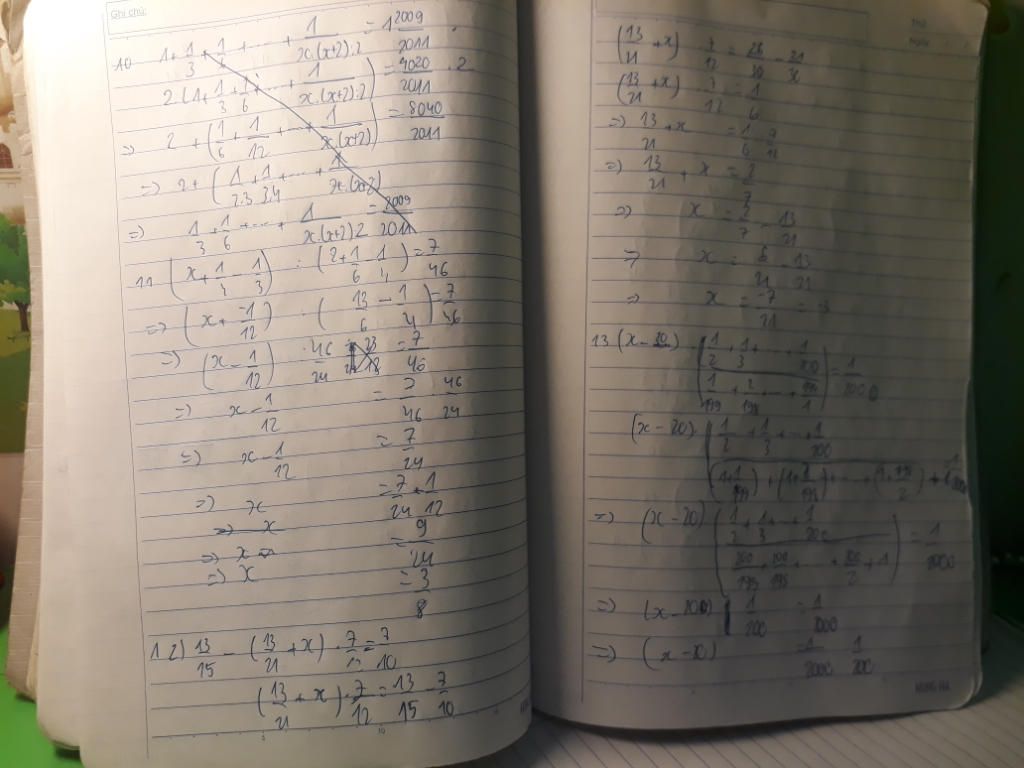 Ghi chú:
10 1 + 1/3 + 1/6 + ... + 1/(x.(x+2):2) = 1 2009/2011
2.(1 + 1/3 + 1/6 + ... + 1/(x.(x+2):2)) = 4020/2011 . 2
=> 2 + (1/6 + 1/12 + ... + 1/(x.(x+2))) = 8040/2011
=> 2 + (1/2.3 + 1/3.4 + ... + 1/(x.(x+2)))
=> 1/3 + 1/6 + ... + 1/(x.(x+2):2) = 2009/2011
11 (x + 1/4 - 1/3) : (2 + 1/6 - 1/4) = 7/46
=> (x + -1/12) : (13/6 - 1/4) = 7/46
=> (x - 1/12) . 46/24 = 7/46
=> x - 1/12 = 7/46 . 46/24
=> x - 1/12 = 7/24
=> x = 7/24 + 1/12
=> x = 9/24
=> x
=> x = 3/8
12) 13/15 - (13/21 + x) . 7/12 = 7/10
(13/21 + x) . 7/12 = 13/15 - 7/10
(13/21 + x) . 7/12 = 26/30 - 21/30
(13/21 + x) . 7/12 = 1/6
=> 13/21 + x = 1/6 : 7/12
=> 13/21 + x = 2/7
=> x = 2/7 - 13/21
=> x = 6/21 - 13/21
=> x = -7/21
13 (x - 20) . (1/2 + 1/3 + ... + 1/200)/(1/199 + 2/198 + ... + 199/1) = 1/2000
(x - 20) . (1/2 + 1/3 + ... + 1/200)/((1 + 1/199) + (1 + 2/198) + ... + (1 + 198/2) + 1)
=> (x - 20) (1/2 + 1/3 + ... + 1/200)/(200/199 + 200/198 + ... + 200/2 + 1) = 1/2000
=> 1/200 = 1/2000
=> (x - 20) = 1/2000 1/200
HONG HA